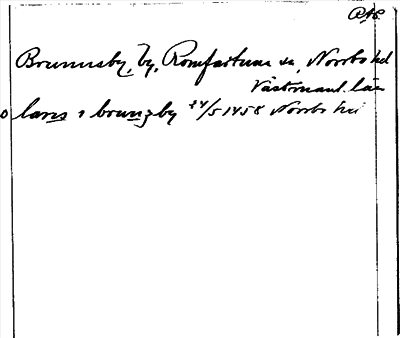 Brunnsby, by, Romfartuna sn, Norrbo hd
Västmanl. län
o laris i brunsby 24/5 1458 Norrbo hd